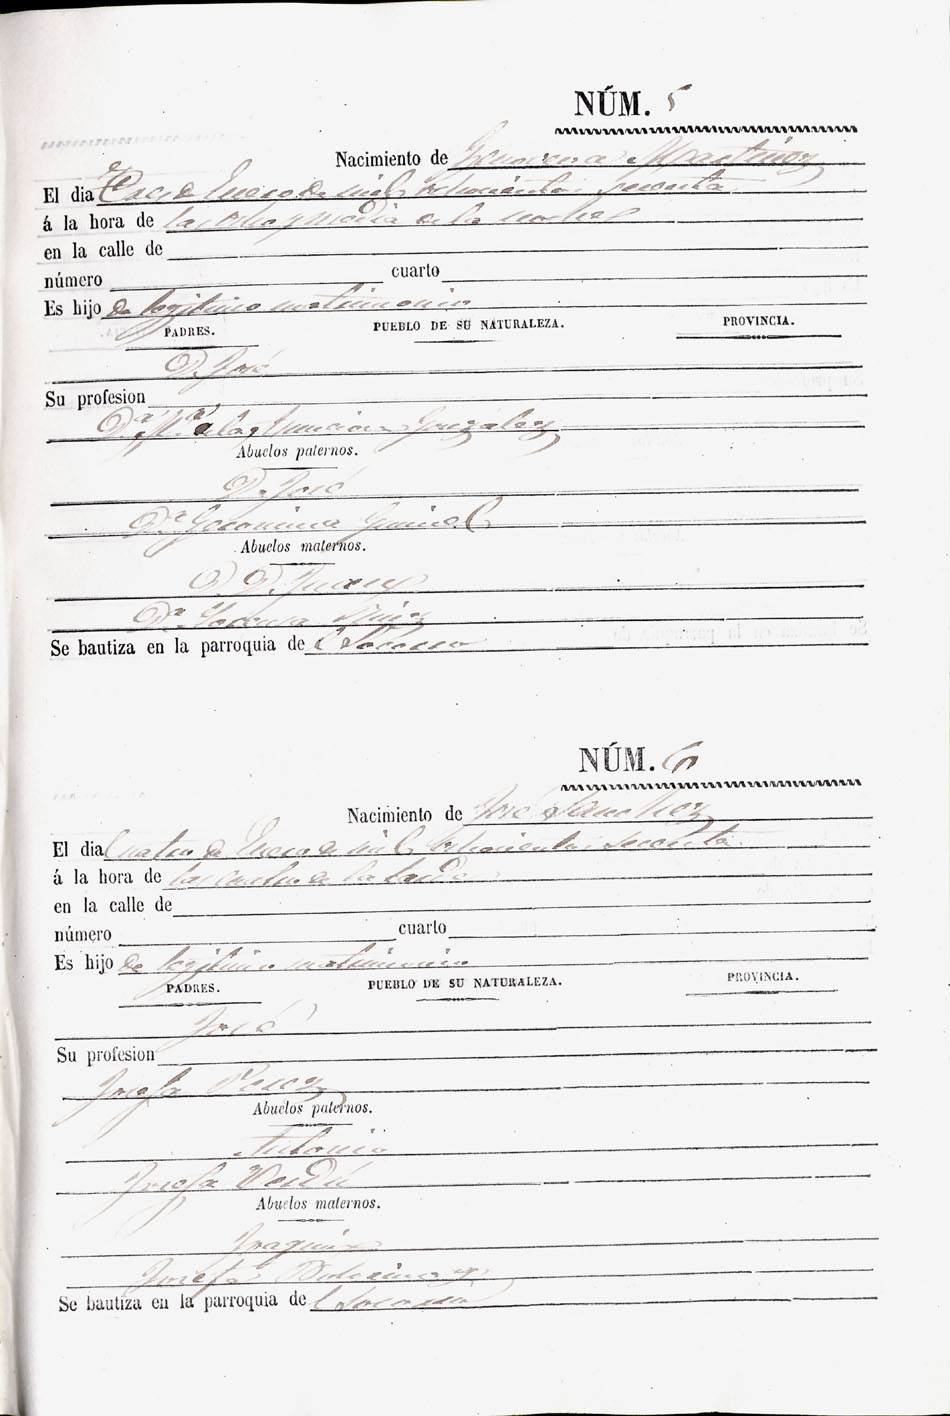 NÚM. 5
Nacimiento de Genoveva Martinez
El dia Tres de Enero de mil ochocientos sesenta
á la hora de las ocho y media de la noche
en la calle de
número cuarto
Es hijo de legitimo matrimonio
PADRES. PUEBLO DE SU NATURALEZA. PROVINCIA.
D. José
Su profesion
D.ª M.ª de la Asuncion Gonzalez
Abuelos paternos.
D. José
D.ª Geronima
Abuelos maternos.
D. D. Juan
D.ª Ruiz
Se bautiza en la parroquia de l Socorro
NÚM. 6
Nacimiento de José Sanchez
El dia Cuatro de Enero de mil ochocientos sesenta
á la hora de las cuatro de la tarde
en la calle de
número cuarto
Es hijo de legitimo matrimonio
PADRES. PUEBLO DE SU NATURALEZA. PROVINCIA.
José
Su profesion
Josefa Perez
Abuelos paternos.
Antonio
Josefa Verdú
Abuelos maternos.
Joaquin
Josefa
Se bautiza en la parroquia de l Socorro